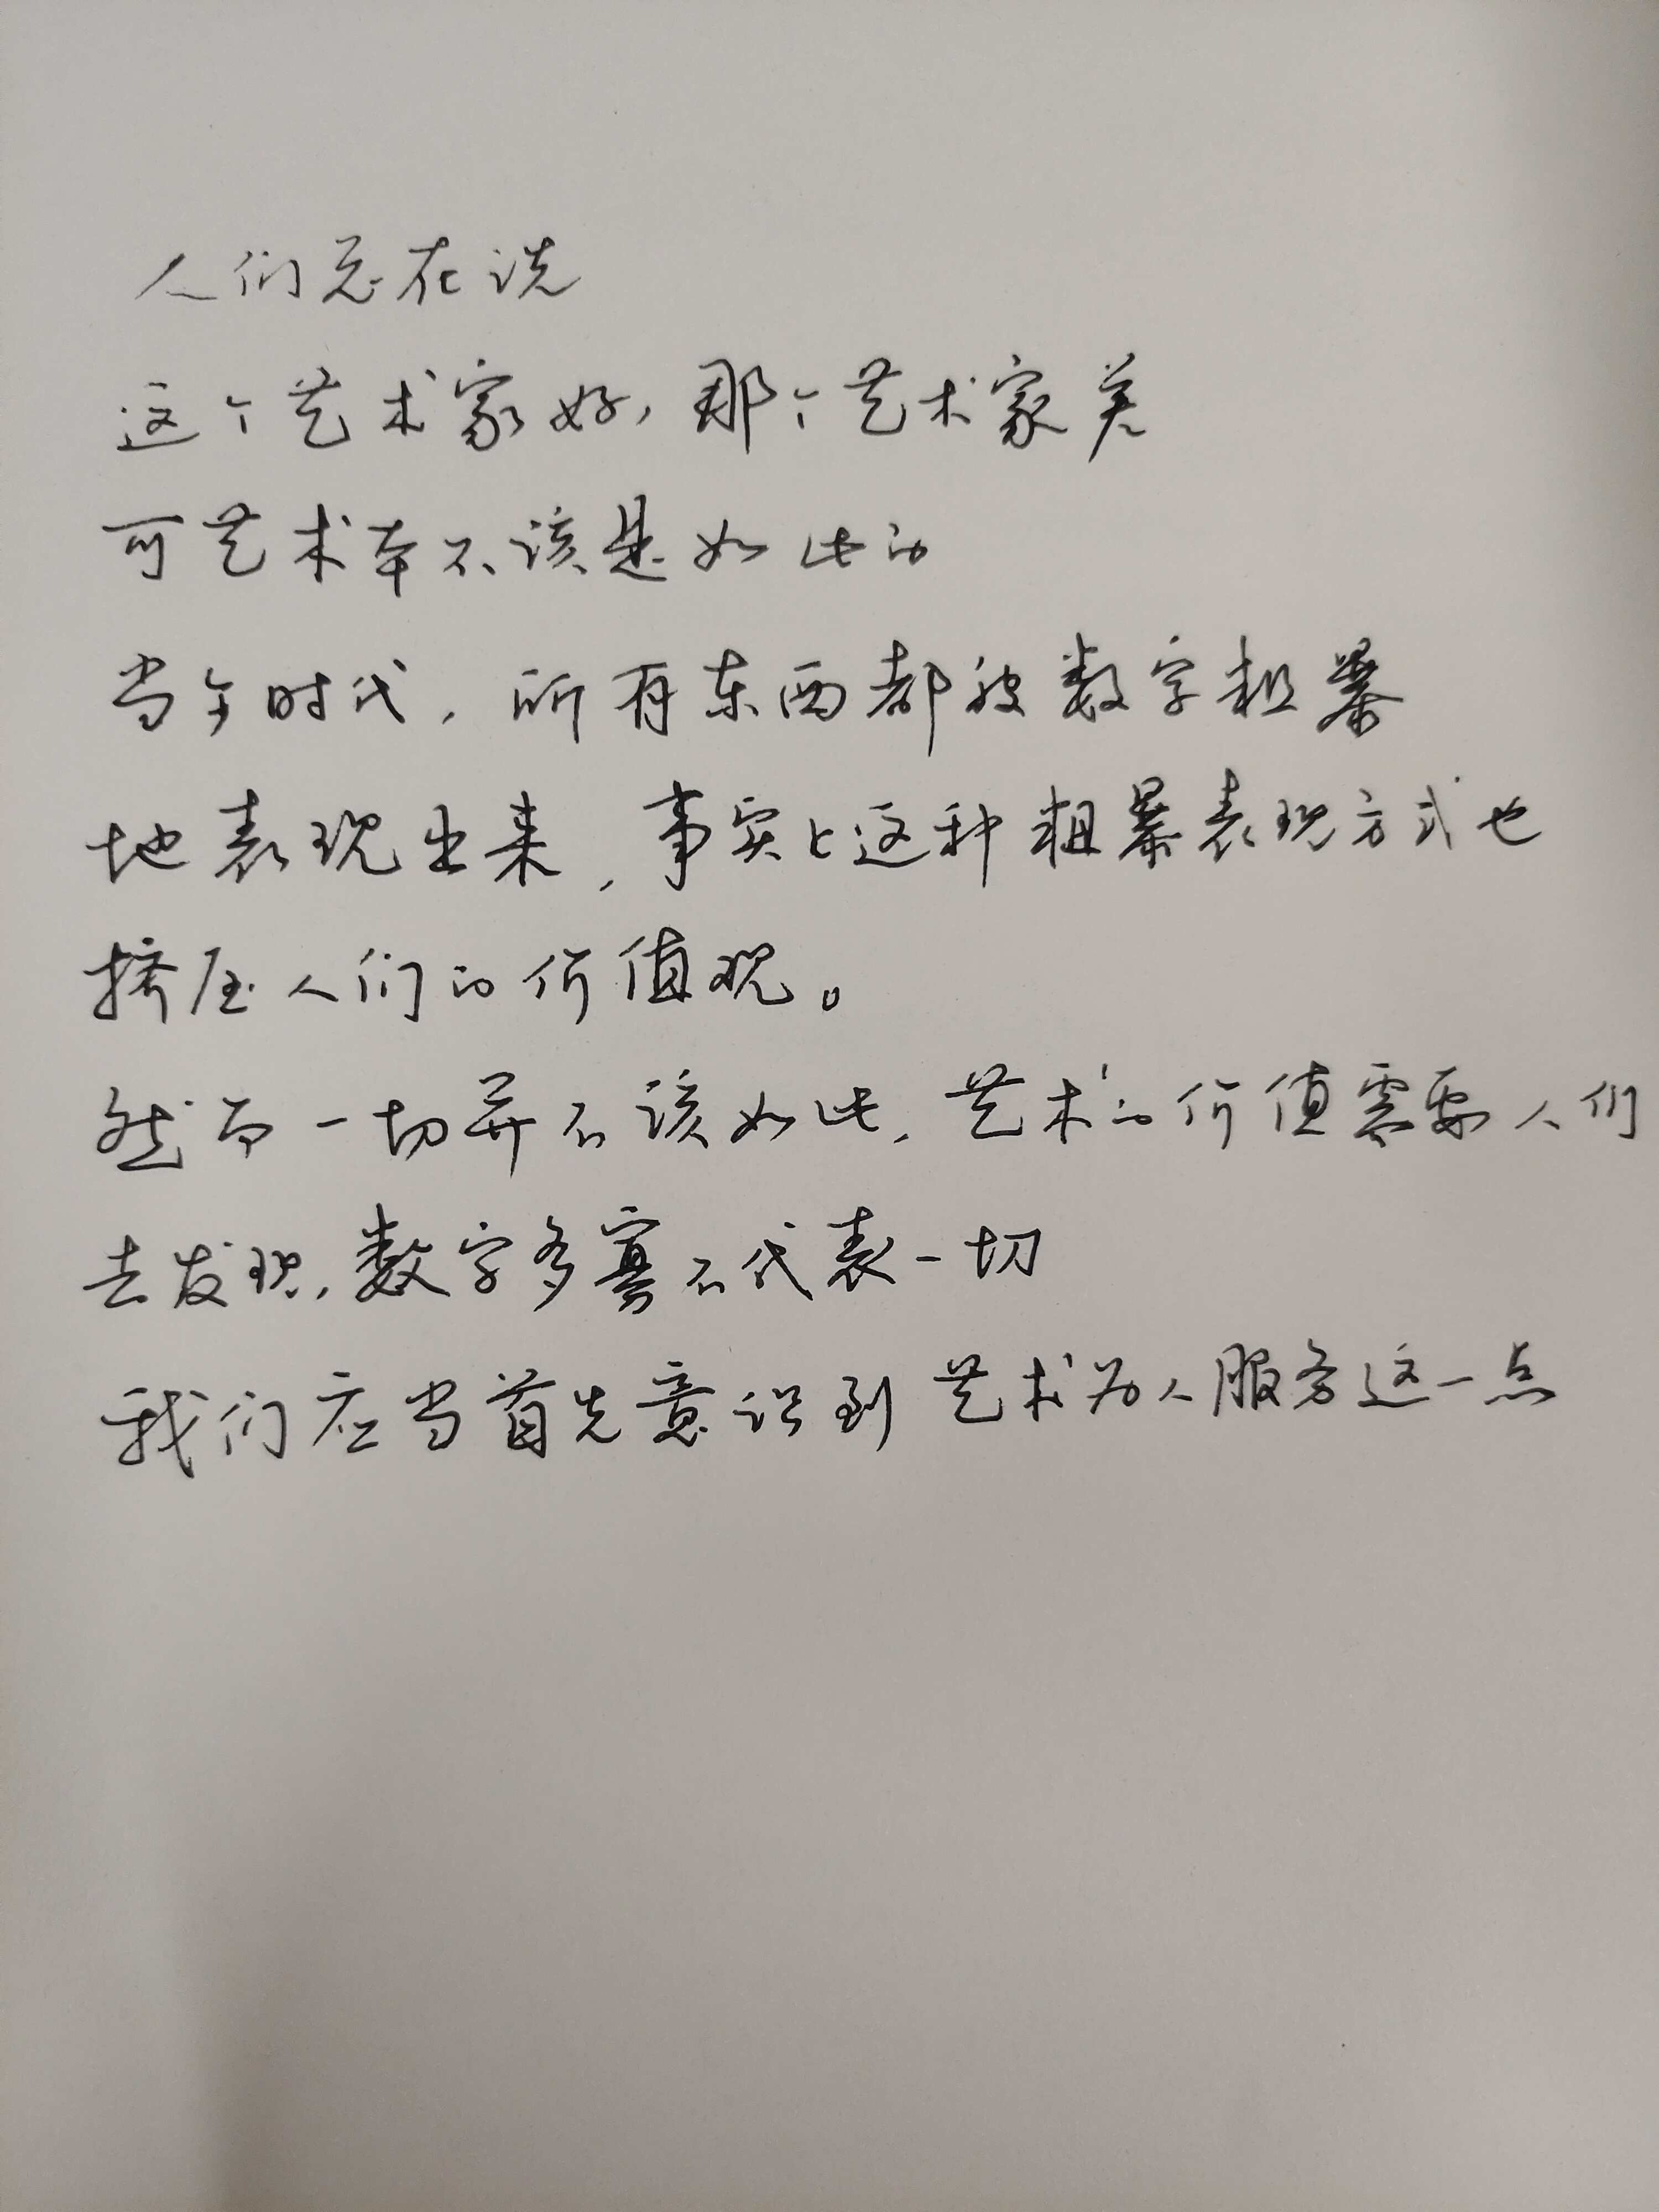 人们总在说
这个艺术家好，那个艺术家差
可艺术本不该是如此的
当今时代，所有东西都被数字粗暴
地表现出来，事实上这种粗暴表现方式也
挤压人们的价值观。
然而一切并不该如此，艺术的价值需要人们
去发现，数字多寡不代表一切
我们应当首先意识到艺术为人服务这一点